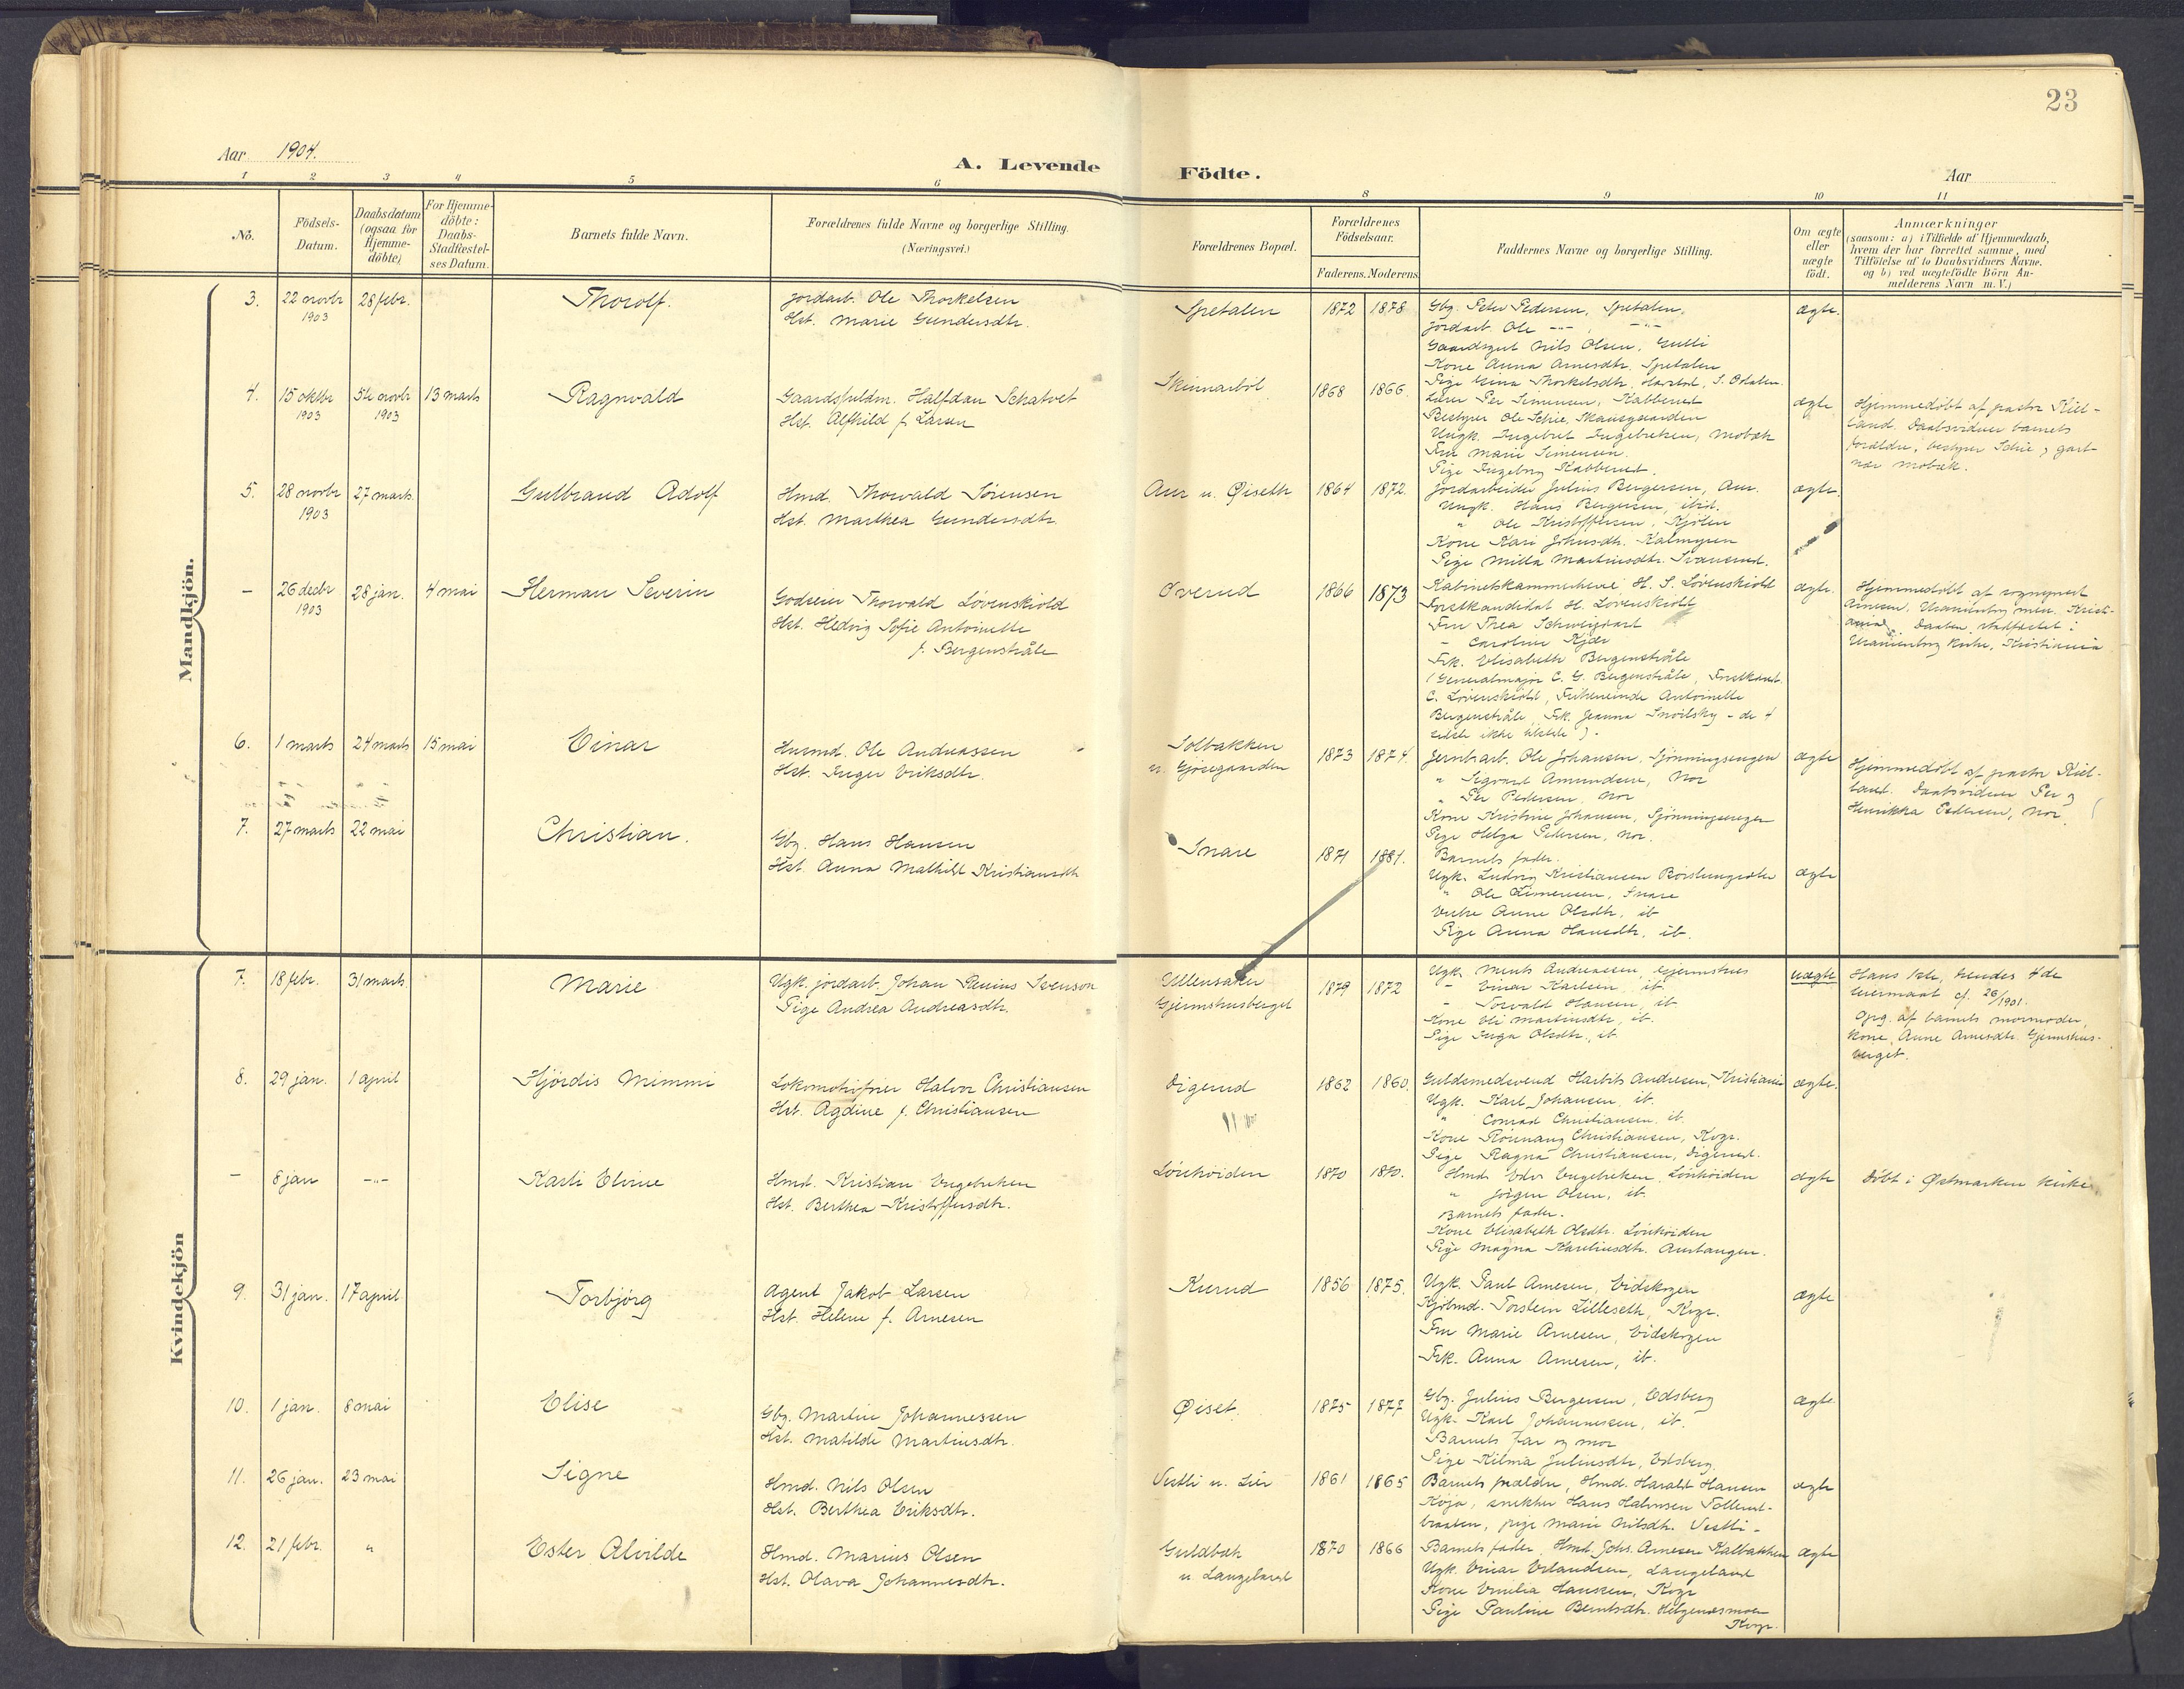 23
Aar 1904.
A. Levende Födte.
Aar
1 2 3 4 5 6 8 9 10 11
No.
Födsels-Datum.
Daabsdatum (ogsaa for Hjemme-döbte)
For Hjemme-döbte: Daabs-Stadfæstel-ses Datum.
Barnets fulde Navn.
Forældrenes fulde Navne og borgerlige Stilling. (Næringsvei.)
Forældrenes Bopæl.
Forældrenes Födselsaar.
Faderens. Moderens.
Faddernes Navne og borgerlige Stilling.
Om ægte eller uægte födt.
Anmærkninger
(saasom: a) i Tilfælde af Hjemmedaab,
hvem der har forrettet samme, med
Tilföielse af to Daabsvidners Navne.
og b) ved uægtefödte Börn An-
melderens Navn m. V.)
Mandkjön.
3. 22 novbr 1903 28 febr. Thorolf.
Jordarb. Ole Thorkelsen
Hst. Marie Gundersdtr.
Spetalen 1872 1878
Gbg. Peter Pedersen, Spetalen,
Jordarb. Ole -"- , -"-
Gaardsgut Nils Olsen, Gulli
Kone Anna Arnesdtr. Spetalen
Pige Gina Thorkelsdtr. S. Odalen.
ægte.
4. 15 oktbr 1903 5te novbr 1903 13 marts Ragnvald
Gaardsfuldm. Halfdan Schatvet
Hst. Alfhild f. Larsen
Skinnarböl 1868 1866
Lærer Per Simensen, Kabberud
Bestyrer Ole Schie, Skansgaarden
Ungk. Ingebret Ingebretsen, Mobæk
Fru Marie Simensen.
Pige Ingeborg Kabberud.
ægte
Hjemmedöbt af pastor Kiel-
land. Daabsvidner barnets
forældre, bestyrer Schie, gart-
ner Mobæk.
5. 28 novbr 1903 27 marts. Gulbrand Adolf
Hmd. Thorvald Sörensen
Hst. Marthea Gundersdtr.
Aur u. Øiseth 1864 1872.
Jordarbeider Julius Bergersen, Aur.
Ungk. Hans Bergersen, ibid.
" Ole Kristoffersen, Kjölen
Kone Kari Johnsdtr. Kalmyren
Pige Milla Martinusdtr.
ægte.
- 26 decbr 1903 28 jan. 4 mai Herman Severin
Godseier Thorvald Lövenskiold
Hst. Hedvig Sofie Antoinette
f. Bergenstråle
Överud 1866 1873
Kabinetskammerherre H. S. Lövenskiold
Forstkandidat H. Lövenskiold
Fru Thea Schweigaard
- Caroline Kjær
Frk. Elisabeth Bergenstråle
(Generalmajor C. G. Bergenstråle, Forstkand.
C. Lövenskiold, Friherreinde Antoinette
Bergenstråle, Frk. Jeanna Snoilsky - de 4
sidste ikke tilstede).
ægte.
Hjemmedöbt af sogneprest
Arnesen, Uranienborg men. Kristi-
ania. Daaben stadfæstet i
Uranienborg kirke, Kristiania
6. 1 marts 24 marts 15 mai Einar
Husmd. Ole Andreassen
Hst. Inger Eriksdtr.
Solbakken
u. Gjösegaarden 1873 1874.
Jernbarb. Ole Johansen, Sjönningsengen
" Sigvart Amundsen, Nor
" Per Pedersen, Nor
Kone Kristine Johansen, Sjönningsengen
Pige Helga Pedersen, Nor.
ægte
Hjemmedöbt af pastor Kiel-
land. Daabsvidner Per og
Henrikka Pedersen, Nor.
7. 27 marts 22 mai Christian.
Gbg. Hans Hansen
Hst. Anna Mathilde Kristiansdtr
Snare 1871 1881.
Barnets fader.
Ugk. Ludvig Kristiansen
" Ole Simensen, Snare
Enke Anne Olsdtr, ib
Pige Anna Hansdtr. ib.
ægte
Kvindekjön
7. 18 febr. 31 marts. Marie
Ugk. jordarb. Johan Paulus Svenson
Pige Andrea Andreasdtr.
Ullensaker
Gjermshusberget 1879 1872
Ugk. Ments Andreassen, Gjermshus
- Einar Karlsen, ib.
- Torvald Hansen, ib
Kone Eli Martinsdtr, ib.
Pige Inga Olsdtr., ib
uægte
Hans 1ste, hendes 4de
leiermaal cf. 26/1901.
Opg. af barnets mormoder,
kone Anne Arnesdtr. Gjermshus-
berget.
8. 29 jan. 1 april Hjördis Mimmi
Lokomotivfyrer Halvor Christiansen
Hst. Agdine f. Christiansen
Digerud 1862 1860.
Guldsmedsvend Andresen, Kristiania
Ugk. Karl Johansen, ib.
" Conrad Christiansen, ib
Kone Rönnaug Christiansen, Kvgr.
Pige Ragna Christiansen, Digerud.
ægte.
- 8 jan -"- Karli Elvine
Hmd. Kristian Engebretsen
Hst. Berthea Kristoffersdtr.
Lönhöiden 1870 1870.
Hmd. Edv Engebretsen, Lönhöiden
" Jörgen Olsen, ib.
Barnets fader.
Kone Elisabeth Olsdtr. Lönhöiden
Pige Magna Karelinsdtr. Austangen.
ægte
Döbt i Østmarken kirke.
9. 31 jan. 17 april Torbjörg
Agent Jakob Larsen
Hst. Helene f. Arnesen
Kurud 1856 1875.
Ugk. Paul Arnesen, Eidskogen
Kjöbmd. Torstein Lilleseth, Kvgr.
Fru Marie Arnesen, Eidskogen
Frk. Anna Arnesen, ib.
ægte
10. 1 jan. 8 mai Elise
Gbg. Martin Johannessen
Hst. Matilde Martinsdtr.
Øiset 1875 1877
Gbg. Julius Bergersen, Edsberg
Ugk. Karl Johannessen, ib.
Barnets far og mor
Pige Hilma Juliusdtr, Edsberg.
ægte
11. 26 jan. 23 mai Signe
Hmd. Nils Olsen
Hst. Berthea Eriksdtr.
Vestli u. Lier 1861 1865
Barnets forældre, Hmd. Harald Hansen
Köja, snekker Hans Halvorsen Tollerud-
braaten, pige Marie Nilsdtr. Vestli -
ægte
12. 21 febr. " Ester Alvilde
Hmd. Marius Olsen
Hst. Olava Johannesdtr.
Guldbæk
u. Langeland 1870 1866
Barnets fader, Hmd. Johs. Arnesen Kalbakken
Ugk. Einar Erlandsen, Langeland
Kone Emilia Hanssen, Kvgr
Pige Pauline Berntsdtr. Helgenæsmoen
Kvgr.
ægte